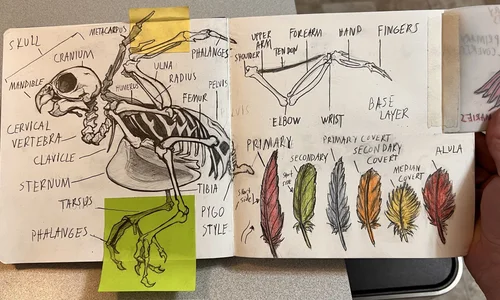 SKULL
METACARPUS
CRANIUM
MANDIBLE
PHALANGES
ULNA
RADIUS
HUMERUS
FEMUR
PELVIS
CERVICAL
VERTEBRA
CLAVICLE
STERNUM
TARSUS
PHALANGES
TIBIA
PYGO
STYLE
UPPER
ARM
FOREARM
HAND
FINGERS
SHOULDER
TENDON
ELBOW
WRIST
BASE
LAYER
PRIMARY
SECONDARY
PRIMARY COVERT
SECONDARY
COVERT
MEDIAN
COVERT
ALULA